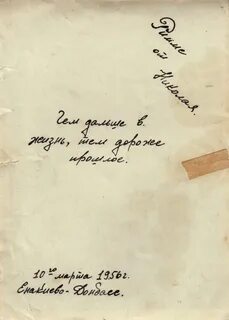 Римме
от Николая.
Чем дальше в
жизнь, тем дороже
прошлое.
10го марта 1956г.
Енакиево-Донбасс.